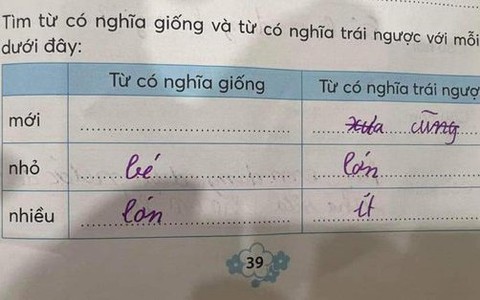 Tìm từ có nghĩa giống và từ có nghĩa trái ngược với mỗi
dưới đây:
Từ có nghĩa giống Từ có nghĩa trái ngượ
mới xưa cũng
nhỏ bé lớn
nhiều lớn ít
39